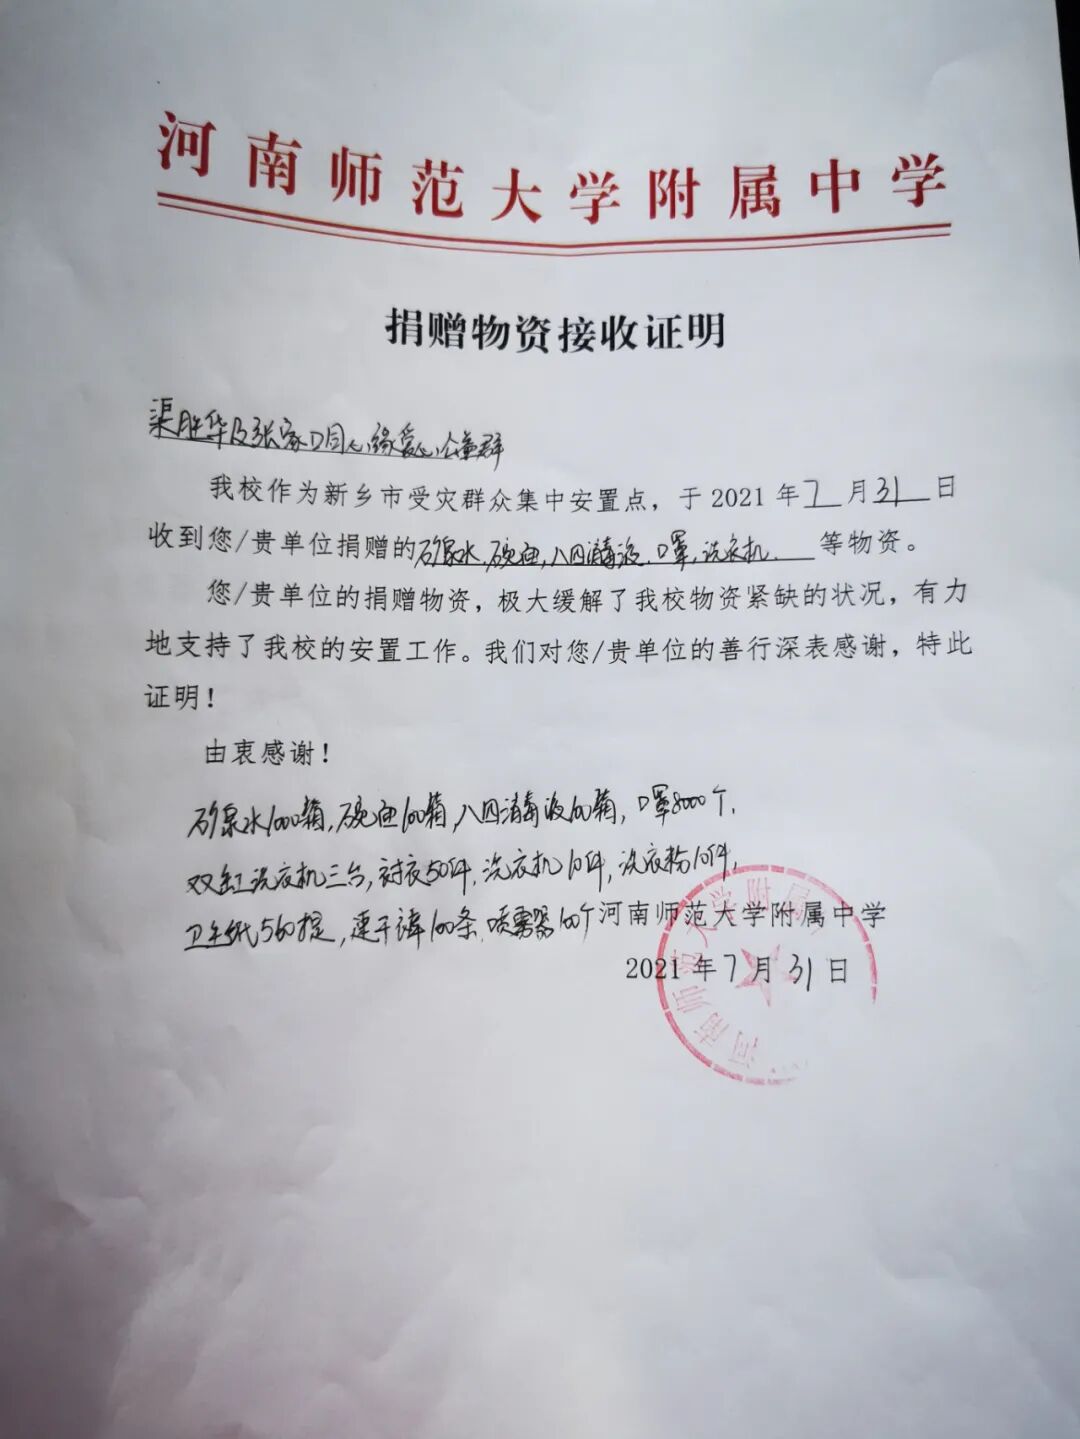 河南师范大学附属中学
捐赠物资接收证明
渠胜华及张家口同心缘爱心企业群
我校作为新乡市受灾群众集中安置点，于 2021 年 7 月 31 日
收到您/贵单位捐赠的矿泉水,碘油,八四消毒液,口罩,洗衣机. 等物资。
您/贵单位的捐赠物资，极大缓解了我校物资紧缺的状况，有力
地支持了我校的安置工作。我们对您/贵单位的善行深表感谢，特此
证明！
由衷感谢！
矿泉水1000箱,箱,八四消毒液100箱,口罩8000个,
双缸洗衣机三台,衬衣50件,洗衣机10件,洗衣粉10件,
卫生纸560提,连干裤100条,喷雾器100个河南师范大学附属中学
2021 年 7 月 31 日
河南师范大学附属